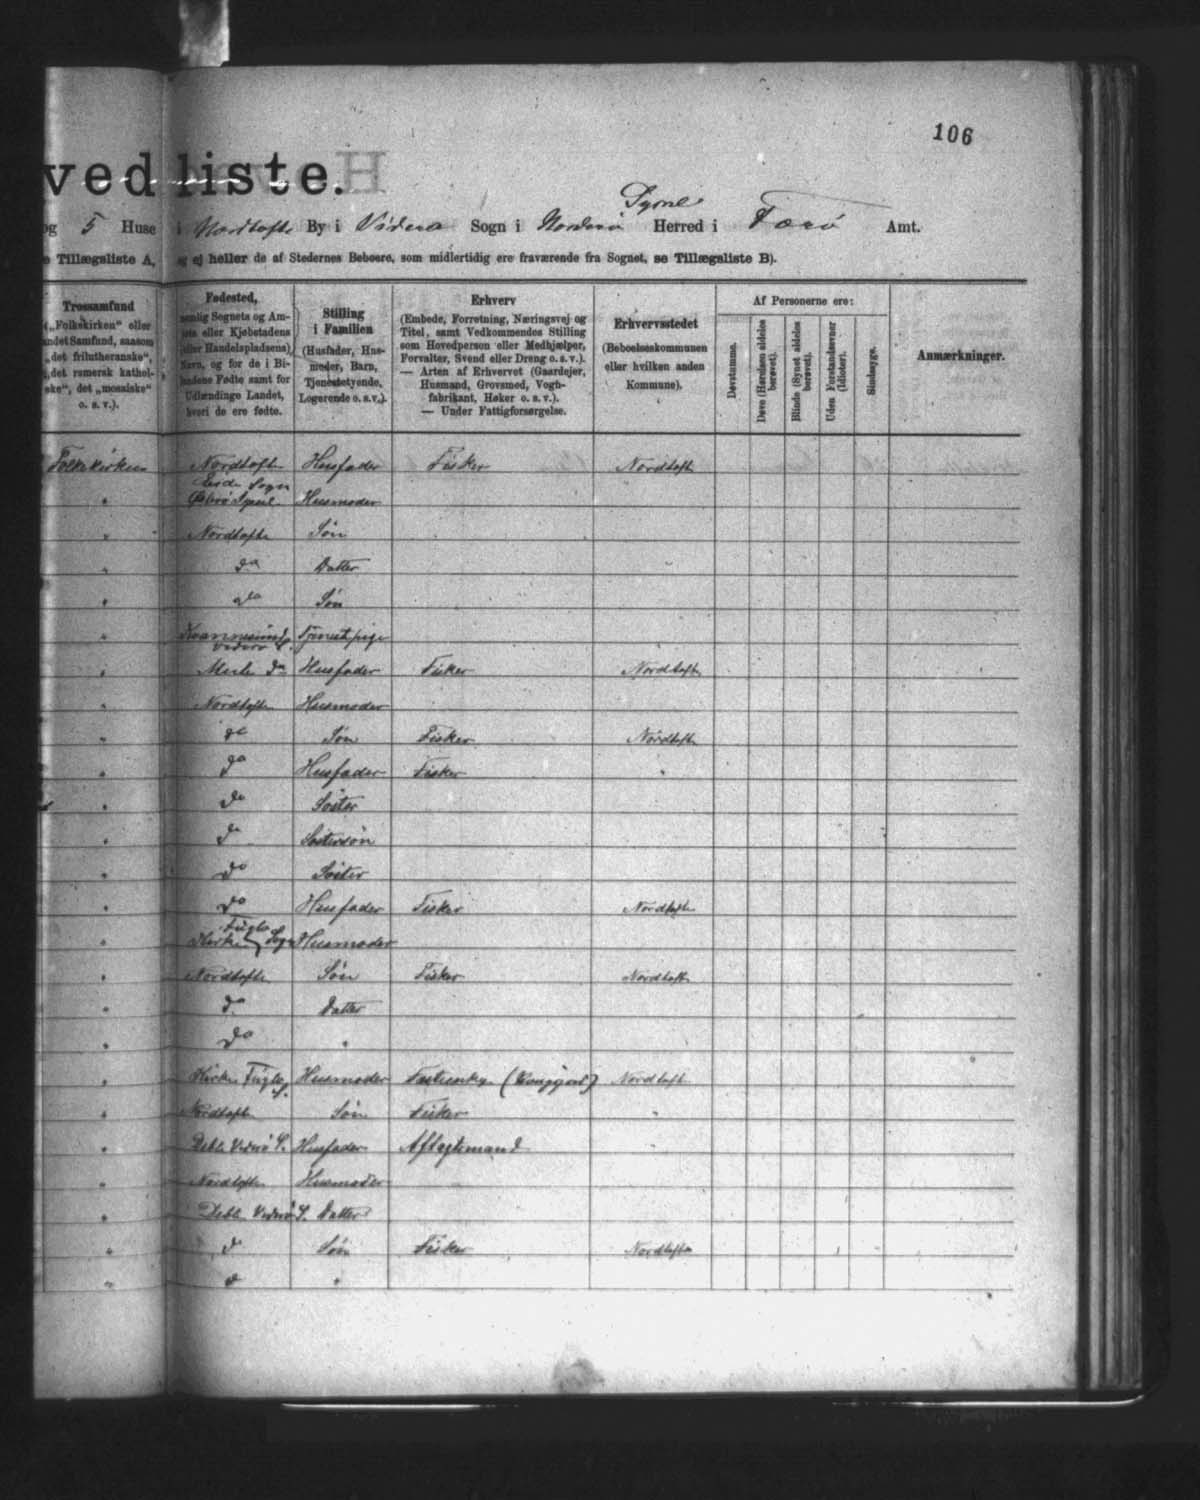 106
vedliste.
Syssel
og 5 Huse i Nordtofte By i Viderø Sogn i Norderø Herred i Færø Amt.
e Tillægsliste A, og ej heller de af Stedernes Beboere, som midlertidig ere fraværende fra Sognet, se Tillægsliste B).
Trossamfund
(„Folkekirken“ eller
andet Samfund, saasom
„det frilutheranske“,
„det romersk kathol-
ske“, det „mosaiske“
o. s. v.).
Fødested,
nemlig Sognets og Am-
tets eller Kjøbstadens
(eller Handelspladsens)
Navn, og for de i Bi-
landene Fødte samt for
Udlændinge Landet,
hvori de ere fødte.
Stilling
i Familien
(Husfader, Hus-
moder, Barn,
Tjenestetyende,
Logerende o. s. v.).
Erhverv
(Embede, Forretning, Næringsvej og
Titel, samt Vedkommendes Stilling
som Hovedperson eller Medhjælper,
Forvalter, Svend eller Dreng o. s. v.).
— Arten af Erhvervet (Gaardejer,
Husmand, Grovsmed, Vogn-
fabrikant, Høker o. s. v.).
— Under Fattigforsørgelse.
Erhvervsstedet
(Beboelseskommunen
eller hvilken anden
Kommune).
Af Personerne ere:
Døvstumme.
Døve (Hørelsen aldeles
berøvet).
Blinde (Synet aldeles
berøvet).
Uden Forstandsevner
(Idioter).
Sindssyge.
Anmærkninger.
Folkekirken Nordtofte Husfader Fisker Nordtofte
Eide Sogn
" Østerø Syssel Husmoder
" Nordtofte Søn
" do Datter
" do Søn
" Kvannesund Tjenestpige
Viderø S.
" Husfader Fisker Nordtofte
" Nordtofte Husmoder
" do Søn Fisker Nordtofte
" do Husfader Fisker "
" do Søster
" do Søstersøn
" do Søster
" do Husfader Fisker Nordtofte
Fuglø
" Kirke Sogn Husmoder
" Nordtofte Søn Fisker Nordtofte
" do Datter
" do "
" Kirke Fuglø S. Husmoder Fæsterenke (Kongsjord) Nordtofte
" Nordtofte Søn Fisker "
" Deble Viderø S. Husfader Aftægtsmand
" Nordtofte Husmoder
" Deble Viderø S. Datter
" do Søn Fisker Nordtofte
" do "